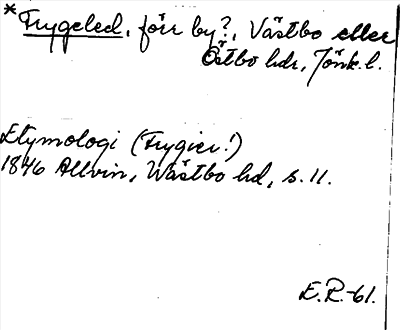 * Frygeled, förr by?, Västbo eller
Östbo hdr, Jönk.l.
Etymologi (Frygier!)
1846 Allvin, Wästbo hd, s. 11.
E.R.-61.